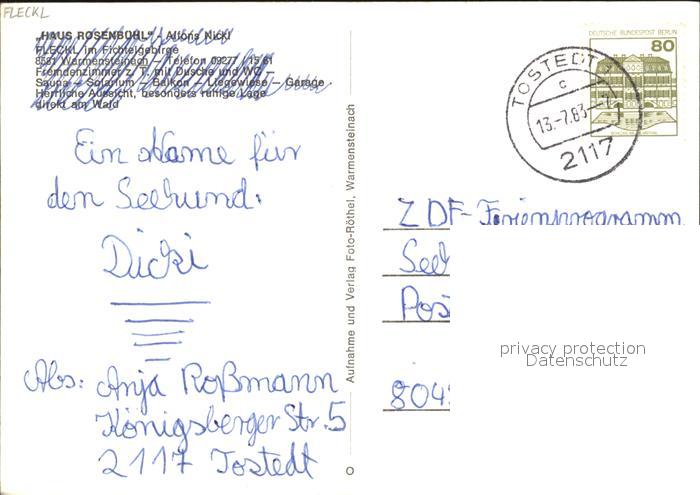 FLECKL
„HAUS ROSENBÜHL" - Alfons Nickl
FLECKL im Fichtelgebirge
8581 Warmensteinach — Telefon 09277 / 15 61
Fremdenzimmer z. T. mit Dusche und WC —
Sauna — Solarium — Balkon — Liegewiese — Garage
Herrliche Aussicht, besonders ruhige Lage
direkt am Wald
Ein Name für
den Seehund:
Dicki
Abs: Anja Roßmann
Königsberger Str. 5
2117 Tostedt
Aufnahme und Verlag Foto-Röthel, Warmensteinach
DEUTSCHE BUNDESPOST BERLIN
80
TOSTEDT 1
c
13.-7.83
2117
ZDF-Ferienprogramm
See
Pos
804
privacy protection
Datenschutz